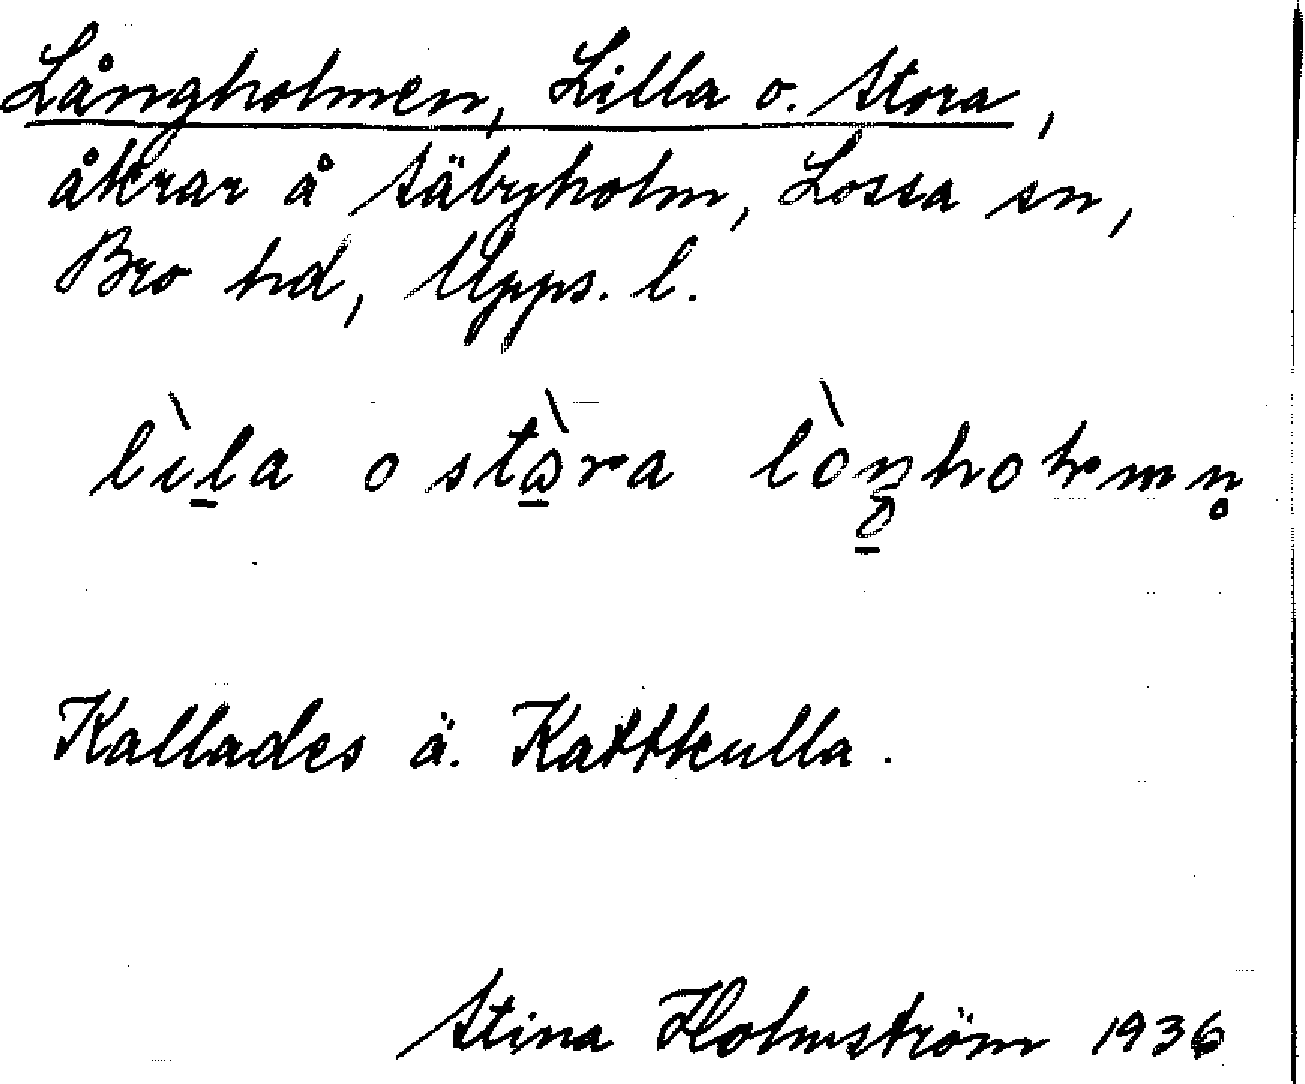 Långholmen, Lilla o. Stora,
åkrar å Säbyholm, Lossa sn,
Bro hd, Upps. l.
Kallades ä. Kattkulla.
Stina Holmström 1936